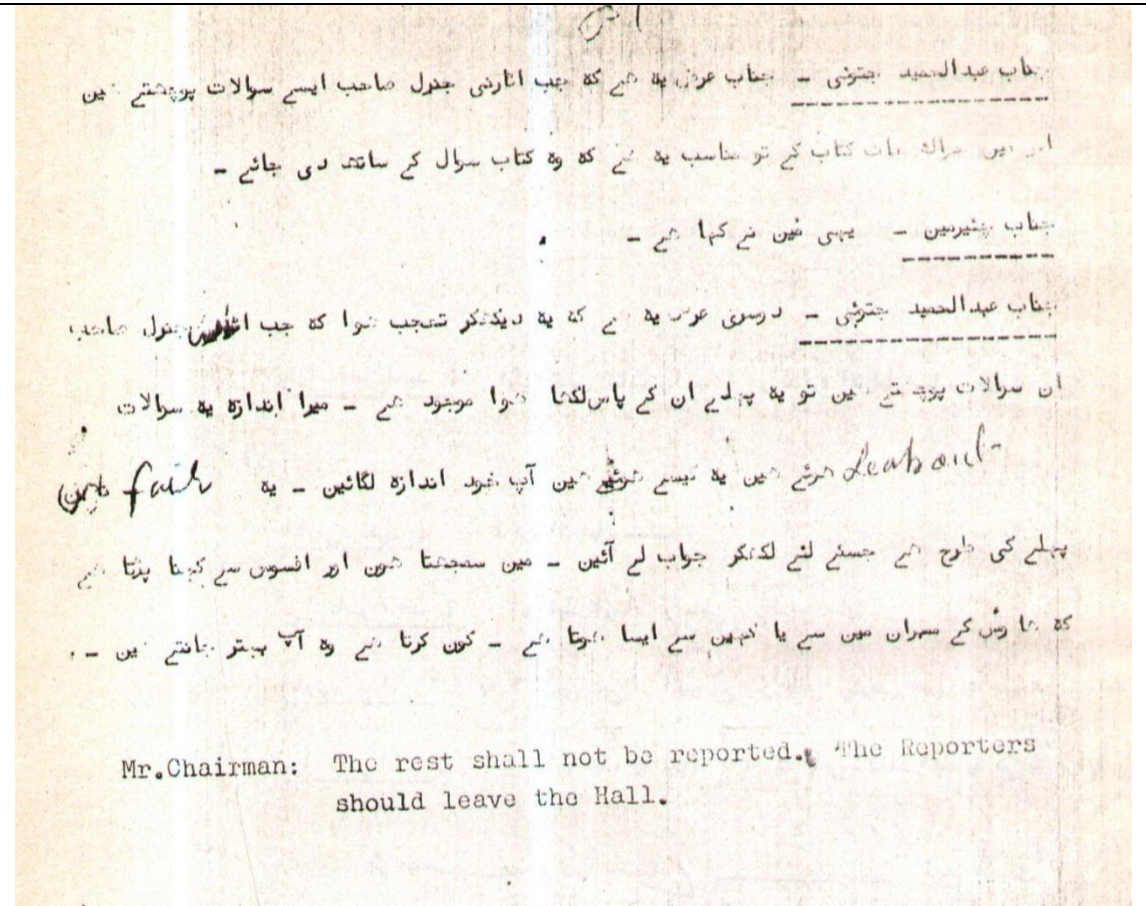 جناب عبدالحمید جتوئی ـ جناب عرض یہ ہے کہ جب اٹارنی جنرل صاحب ایسے سوالات پوچھتے ہین
کتاب کے تو مناسب یہ ہے کہ وہ کتاب سوال کے ساتھ دی جائے ـ
جناب چئیرمین ـ یہی مین نے کہا ہے ـ
جناب عبدالحمید جتوئی ـ دوسری عرض یہ ہے کہ یہ دیکھکر تعجب ہوا کہ جب اٹارنی جنرل صاحب
ان سوالات پوچھتے ہین تو یہ پہلے ان کے پاس لکھا ہوا موجود ہے ـ میرا اندازہ یہ سوالات
Leak out ہوئے ہین یہ کیسے ہوئے ہین آپ خود اندازہ لگائین ـ یہ
پہلے کی طرح ہے جسکے لئے لکھکر جواب لے آئین ـ مین سمجھتا ہون اور افسوس سے کہنا پڑتا ہے
کہ ہاوس کے ممبران مین سے یا کہین سے ایسا ہوتا ہے ـ کون کرتا ہے وہ آپ بہتر جانتے ہین ـ
Mr.Chairman: The rest shall not be reported. The Reporters
should leave the Hall.